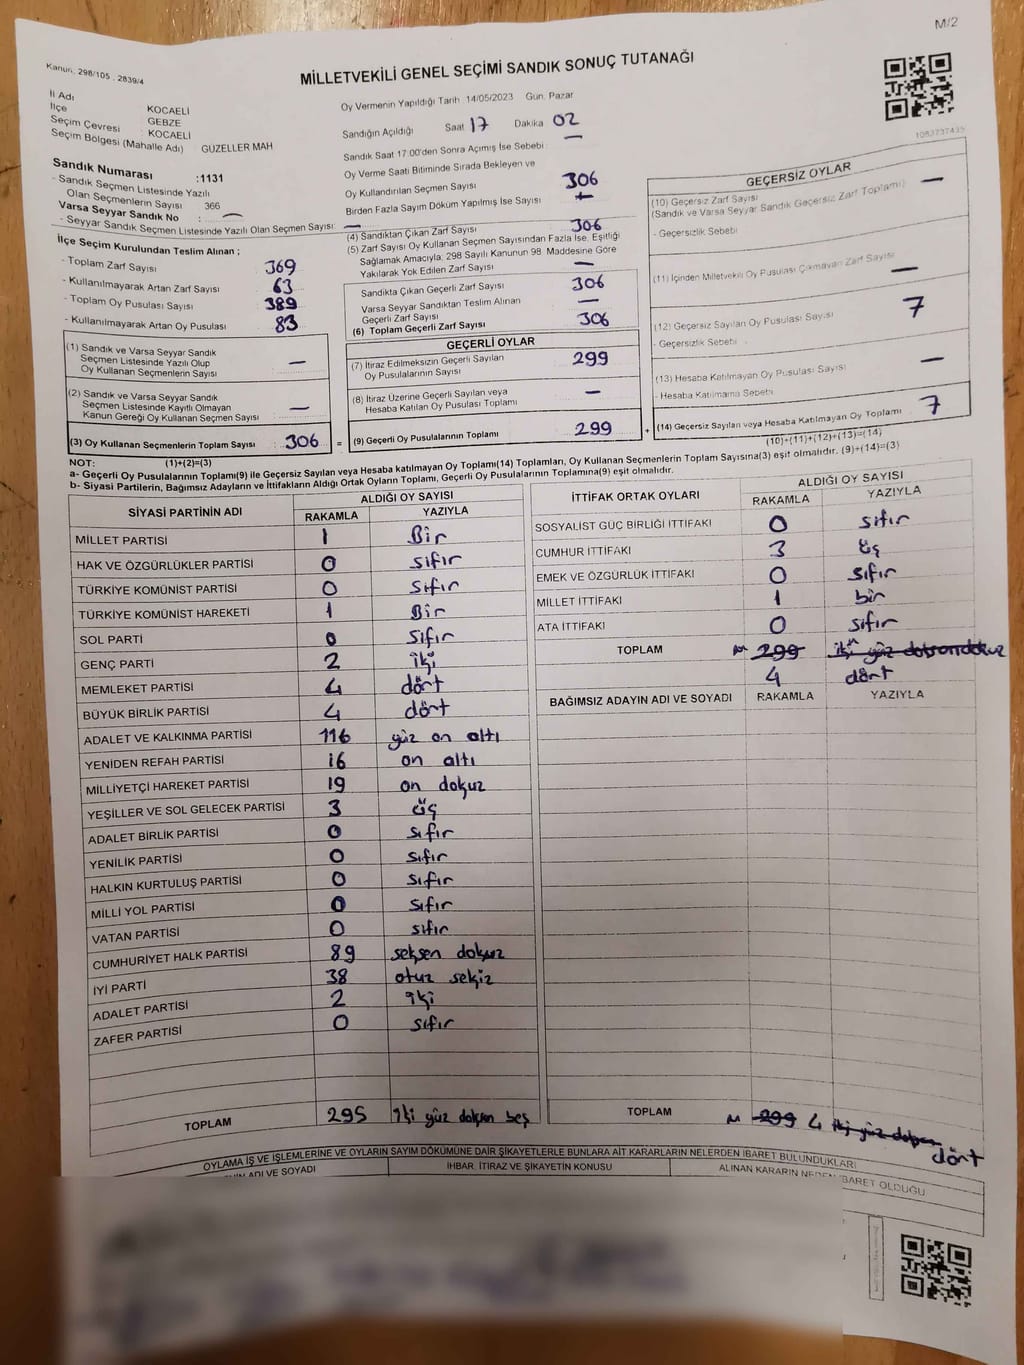 M/2
Kanun. 298/105 . 2839/4
MİLLETVEKİLİ GENEL SEÇİMİ SANDIK SONUÇ TUTANAĞI
1082737435
İl Adı KOCAELİ
İlçe GEBZE
Seçim Çevresi : KOCAELİ
Seçim Bölgesi (Mahalle Adı) GÜZELLER MAH
Sandık Numarası :1131
- Sandık Seçmen Listesinde Yazılı
Olan Seçmenlerin Sayısı 366
Varsa Seyyar Sandık No : —
- Seyyar Sandık Seçmen Listesinde Yazılı Olan Seçmen Sayısı : —
İlçe Seçim Kurulundan Teslim Alınan ;
- Toplam Zarf Sayısı 369
- Kullanılmayarak Artan Zarf Sayısı 63
- Toplam Oy Pusulası Sayısı 389
- Kullanılmayarak Artan Oy Pusulası 83
(1) Sandık ve Varsa Seyyar Sandık
Seçmen Listesinde Yazılı Olup
Oy Kullanan Seçmenlerin Sayısı —
(2) Sandık ve Varsa Seyyar Sandık
Seçmen Listesinde Kayıtlı Olmayan
Kanun Gereği Oy Kullanan Seçmen Sayısı —
(3) Oy Kullanan Seçmenlerin Toplam Sayısı 306 =
Oy Vermenin Yapıldığı Tarih 14/05/2023 Gün. Pazar
Sandığın Açıldığı Saat 17 Dakika 02
Sandık Saat 17:00'den Sonra Açımış İse Sebebi : —
Oy Verme Saati Bitiminde Sırada Bekleyen ve
Oy Kullandırılan Seçmen Sayısı 306
Birden Fazla Sayım Döküm Yapılmış İse Sayısı —
(4) Sandıktan Çıkan Zarf Sayısı 306
(5) Zarf Sayısı Oy Kullanan Seçmen Sayısından Fazla İse, Eşitliği
Sağlamak Amacıyla; 298 Sayılı Kanunun 98. Maddesine Göre
Yakılarak Yok Edilen Zarf Sayısı —
Sandıkta Çıkan Geçerli Zarf Sayısı 306
Varsa Seyyar Sandıktan Teslim Alınan
Geçerli Zarf Sayısı —
(6) Toplam Geçerli Zarf Sayısı 306
GEÇERLİ OYLAR
(7) İtiraz Edilmeksizin Geçerli Sayılan
Oy Pusulalarının Sayısı 299
(8) İtiraz Üzerine Geçerli Sayılan veya
Hesaba Katılan Oy Pusulası Toplamı —
(9) Geçerli Oy Pusulalarının Toplamı 299 +
GEÇERSİZ OYLAR
(10) Geçersiz Zarf Sayısı
(Sandık ve Varsa Seyyar Sandık Geçersiz Zarf Toplamı) —
- Geçersizlik Sebebi
(11) İçinden Milletvekili Oy Pusulası Çıkmayan Zarf Sayısı —
(12) Geçersiz Sayılan Oy Pusulası Sayısı 7
- Geçersizlik Sebebi
(13) Hesaba Katılmayan Oy Pusulası Sayısı —
- Hesaba Katılmama Sebebi
(14) Geçersiz Sayılan veya Hesaba Katılmayan Oy Toplamı 7
(1)+(2)=(3)
(10)+(11)+(12)+(13)=(14)
NOT:
a- Geçerli Oy Pusulalarının Toplamı(9) ile Geçersiz Sayılan veya Hesaba katılmayan Oy Toplamı(14) Toplamları, Oy Kullanan Seçmenlerin Toplam Sayısına(3) eşit olmalıdır. (9)+(14)=(3)
b- Siyasi Partilerin, Bağımsız Adayların ve İttifakların Aldığı Ortak Oyların Toplamı, Geçerli Oy Pusulalarının Toplamına(9) eşit olmalıdır.
SİYASİ PARTİNİN ADI ALDIĞI OY SAYISI
RAKAMLA YAZIYLA
MİLLET PARTİSİ 1 Bir
HAK VE ÖZGÜRLÜKLER PARTİSİ 0 sıfır
TÜRKİYE KOMÜNİST PARTİSİ 0 sıfır
TÜRKİYE KOMÜNİST HAREKETİ 1 Bir
SOL PARTİ 0 sıfır
GENÇ PARTİ 2 iki
MEMLEKET PARTİSİ 4 dört
BÜYÜK BİRLİK PARTİSİ 4 dört
ADALET VE KALKINMA PARTİSİ 116 yüz on altı
YENİDEN REFAH PARTİSİ 16 on altı
MİLLİYETÇİ HAREKET PARTİSİ 19 on dokuz
YEŞİLLER VE SOL GELECEK PARTİSİ 3 üç
ADALET BİRLİK PARTİSİ 0 sıfır
YENİLİK PARTİSİ 0 sıfır
HALKIN KURTULUŞ PARTİSİ 0 sıfır
MİLLİ YOL PARTİSİ 0 sıfır
VATAN PARTİSİ 0 sıfır
CUMHURİYET HALK PARTİSİ 89 seksen dokuz
İYİ PARTİ 38 otuz sekiz
ADALET PARTİSİ 2 iki
ZAFER PARTİSİ 0 sıfır
TOPLAM 295 iki yüz doksan beş
İTTİFAK ORTAK OYLARI ALDIĞI OY SAYISI
RAKAMLA YAZIYLA
SOSYALİST GÜÇ BİRLİĞİ İTTİFAKI 0 sıfır
CUMHUR İTTİFAKI 3 üç
EMEK VE ÖZGÜRLÜK İTTİFAKI 0 sıfır
MİLLET İTTİFAKI 1 bir
ATA İTTİFAKI 0 sıfır
TOPLAM 299 iki yüz doksan dokuz
4 dört
BAĞIMSIZ ADAYIN ADI VE SOYADI RAKAMLA YAZIYLA
TOPLAM 299 4 iki yüz
dört
OYLAMA İŞ VE İŞLEMLERİNE VE OYLARIN SAYIM DÖKÜMÜNE DAİR ŞİKAYETLERLE BUNLARA AİT KARARLARIN NELERDEN İBARET BULUNDUKLARI
ADI VE SOYADI İHBAR, İTİRAZ VE ŞİKAYETİN KONUSU ALINAN KARARIN NEDEN İBARET OLDUĞU